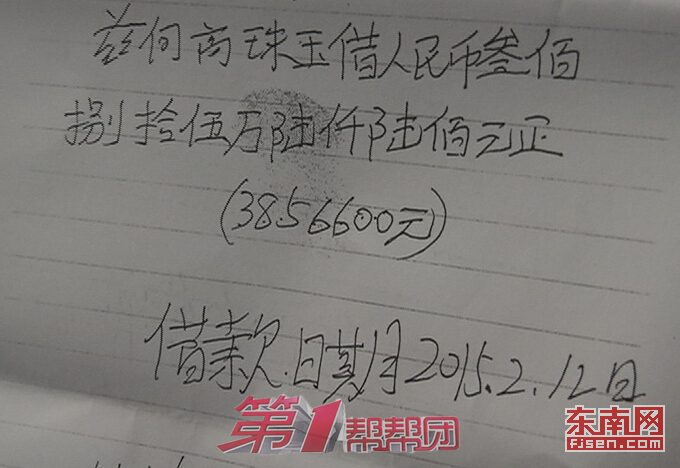 兹向高珠玉借人民币叁佰
捌拾伍万陆仟陆佰元正
(3856600元)
借款.日期月2015.2.12日
第1帮帮团
东南网
fjsen.com